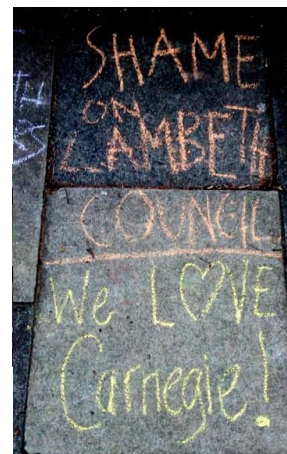 SHAME
ON
LAMBETH
COUNCIL
We L♡VE
Carnegie!